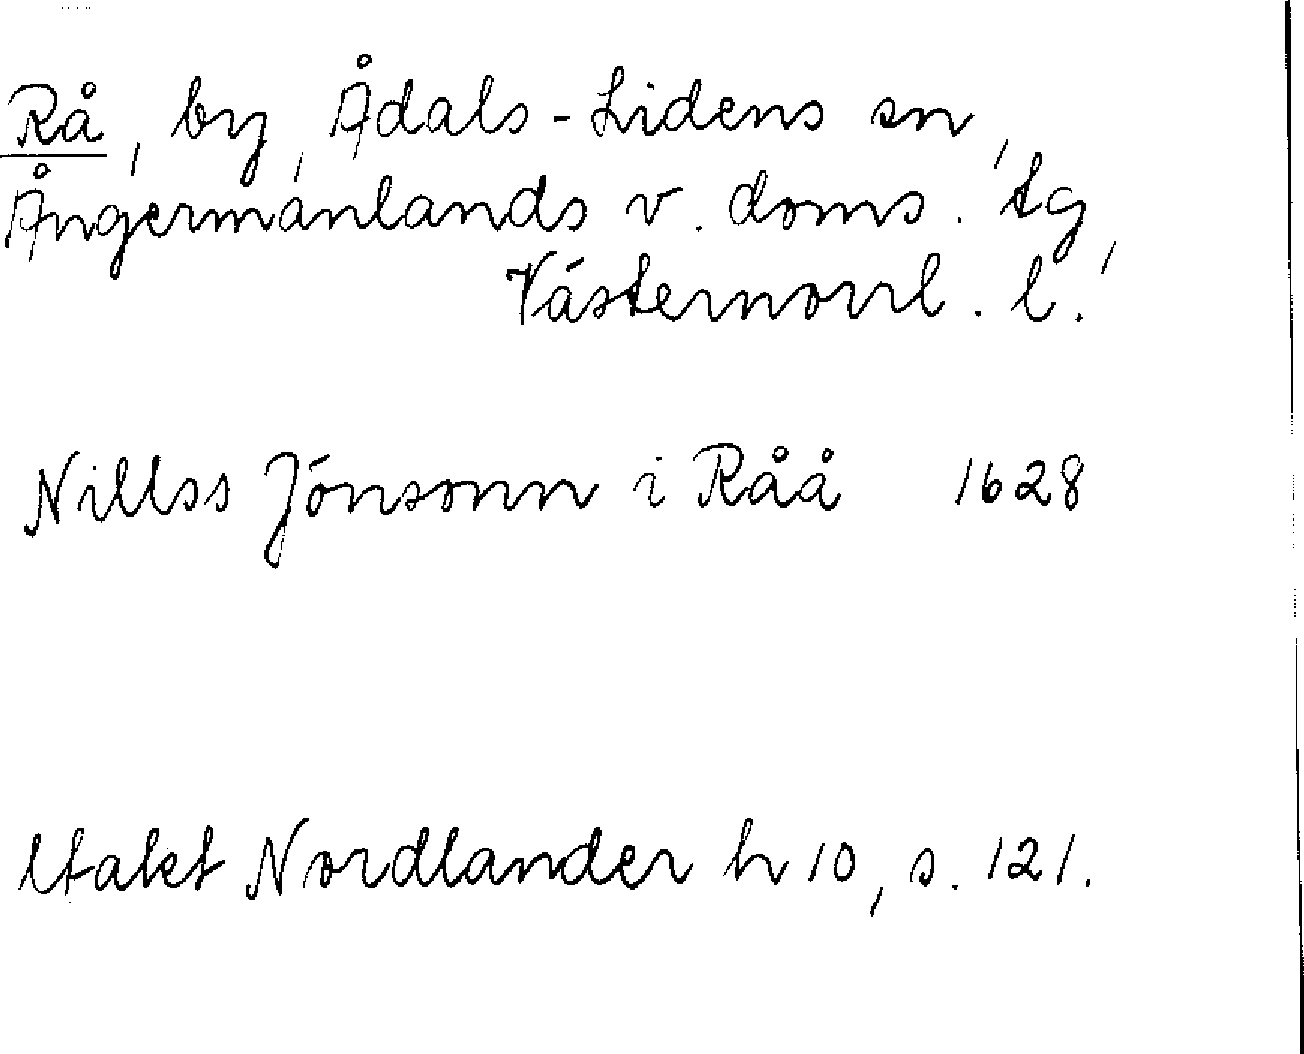 Rå, by, Ådals-Lidens sn,
Ångermanlands v. doms. tg,
Västernorrl. l.
Nillss Jónsonn i Råå 1628
Utakt Nordlander h 10, s. 121.